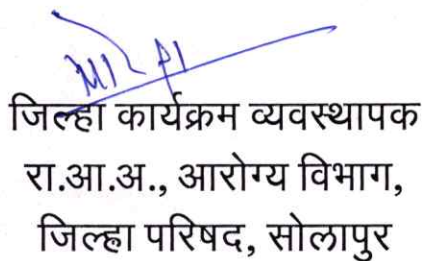 जिल्हा कार्यक्रम व्यवस्थापक
रा.आ.अ., आरोग्य विभाग,
जिल्हा परिषद, सोलापुर